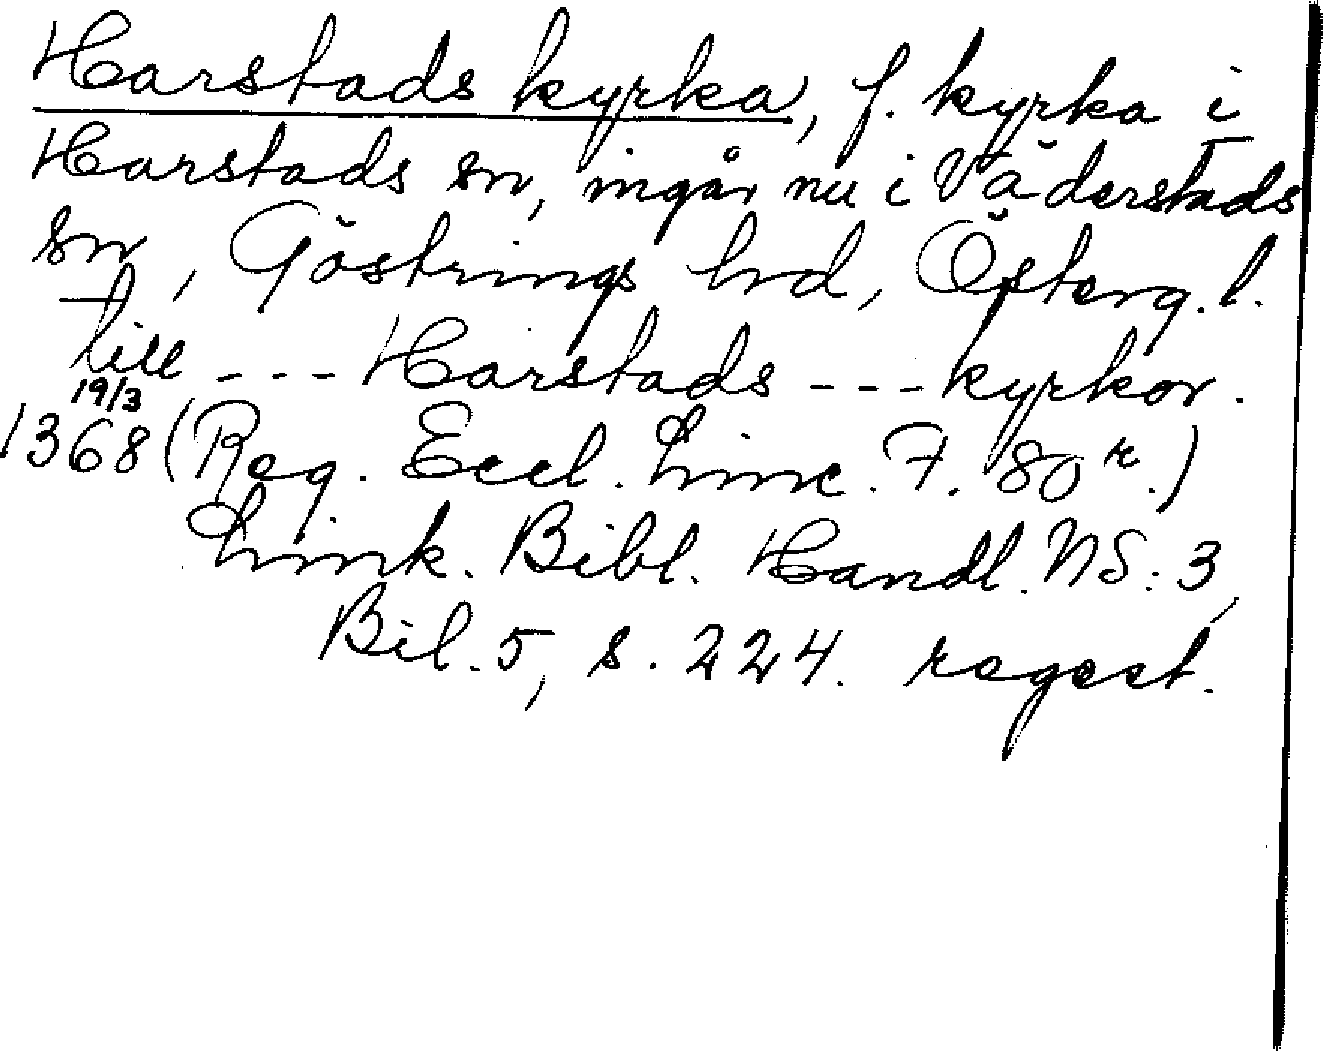 Harstads kyrka, f. kyrka i
Harstads sn, ingår nu i Väderstads
sn, Göstrings hd, Österg. l.
till --- Harstads --- kyrkor.
19/3
1368 (Reg. Eccl. Linc. F. 80 r.)
Link. Bibl. Handl. NS: 3,
Bil. 5, s. 224. regest.